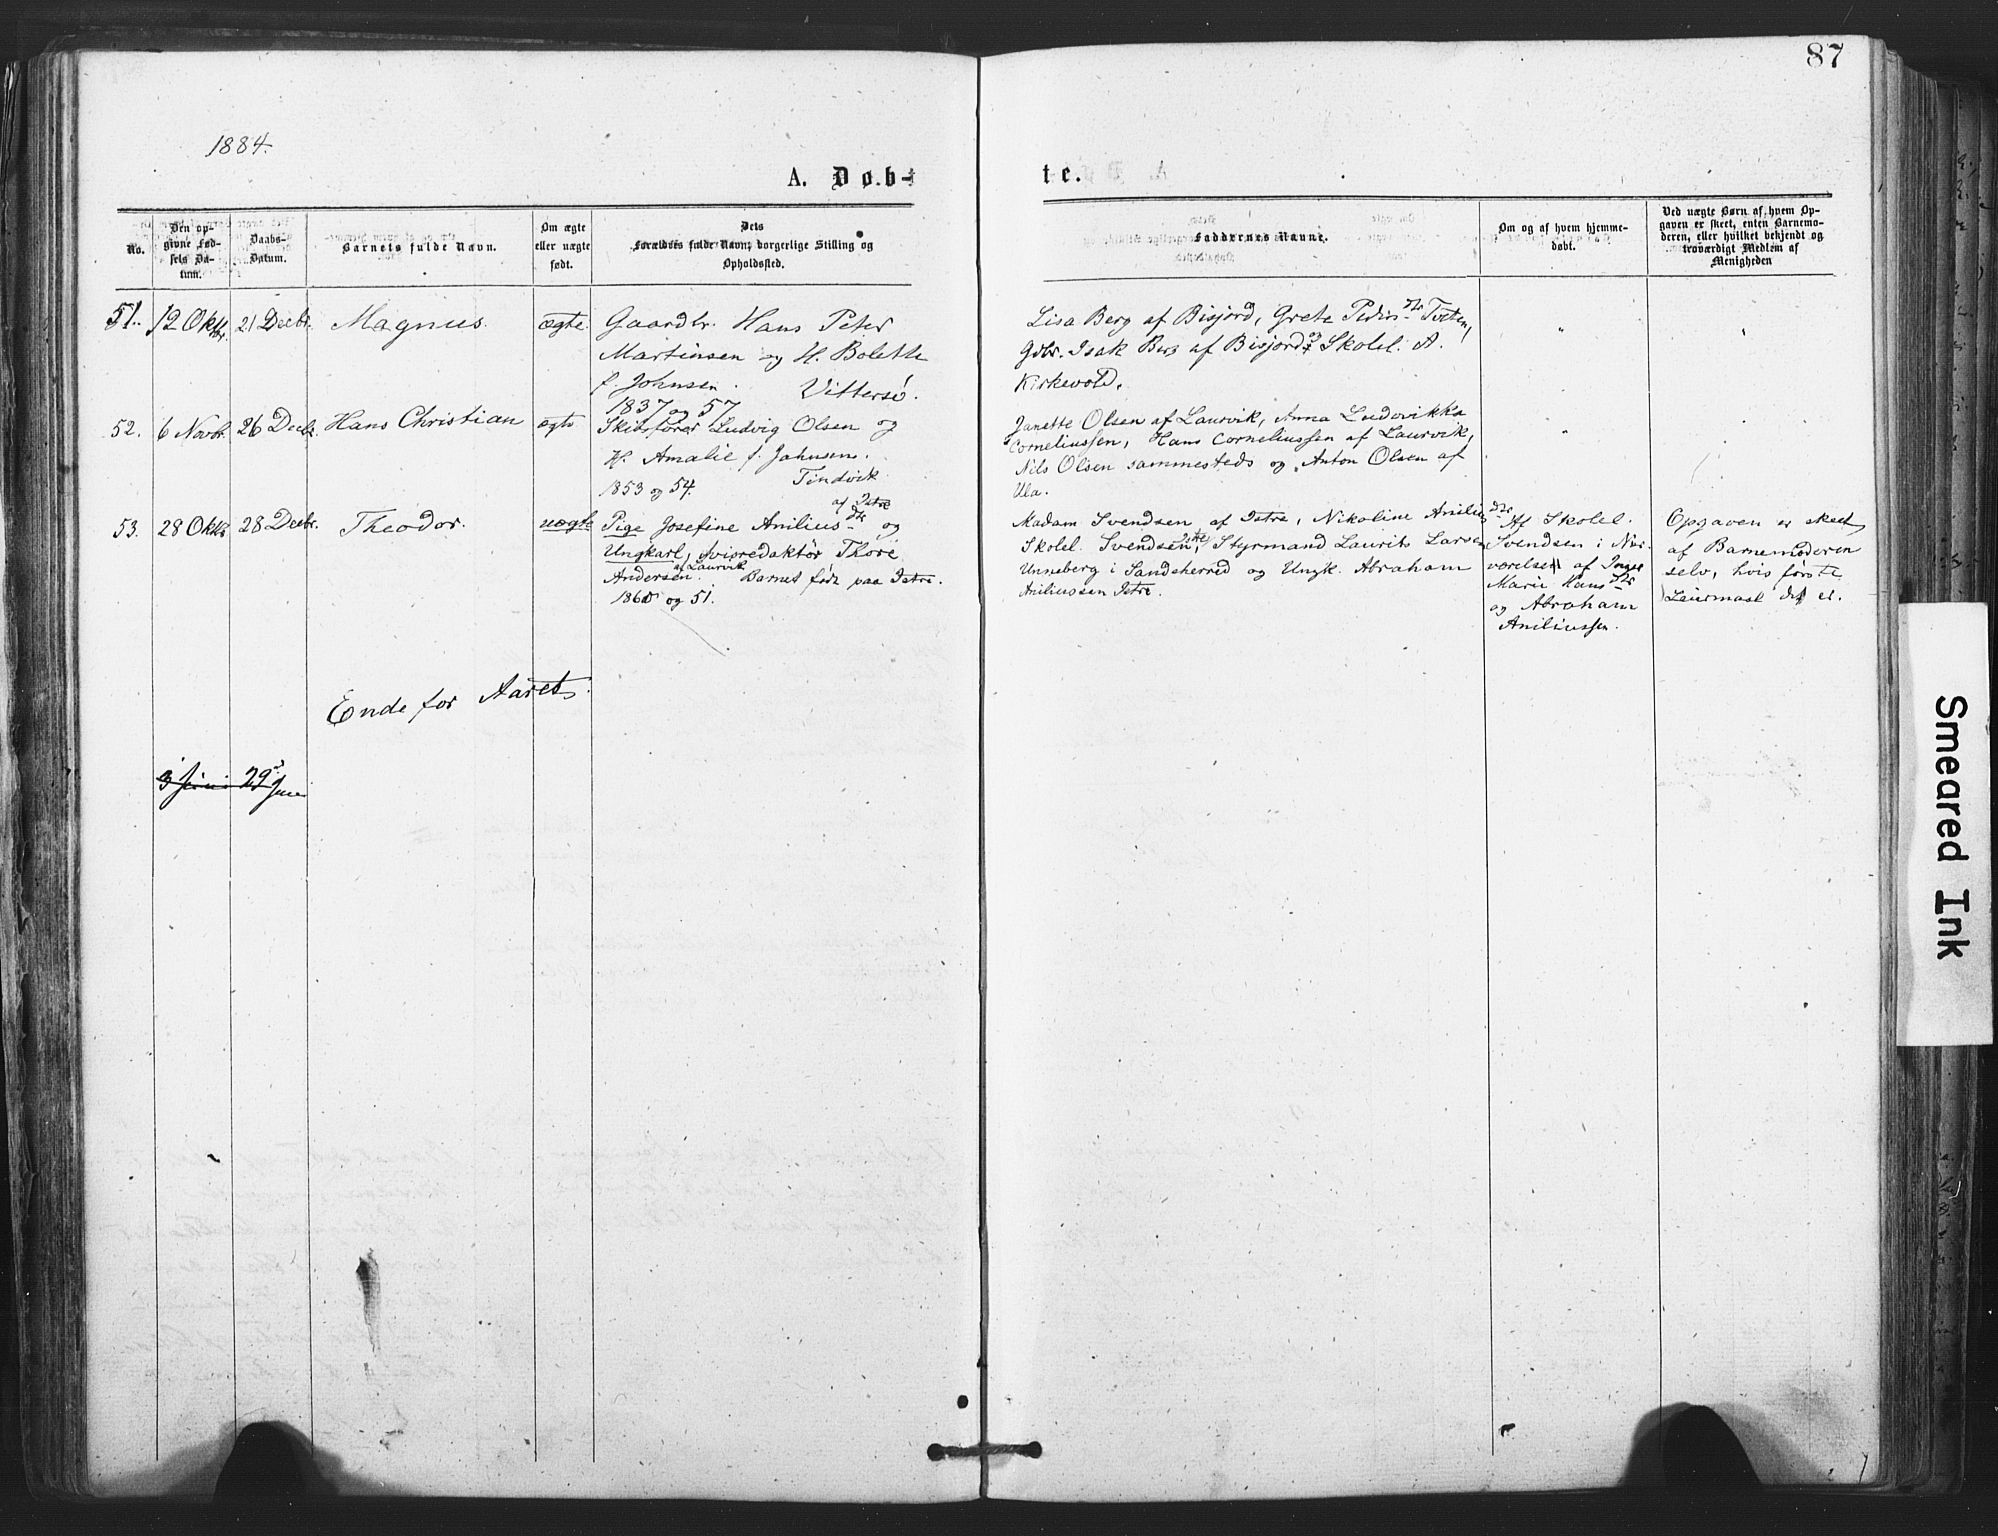 87
1884.
A. Døb-
te.
No.
Den opgivne Fødsels Datum.
Daabs-Datum.
Barnets fulde Navn.
Om ægte eller uægte født.
Dets Forældres fulde Navn, borgerlige Stilling og Opholdssted.
Faddernes Navne.
Om og af hvem hjemmedøbt.
Ved uægte Børn af hvem Opgaven er skeet, enten Barnemoderen, eller hvilket bekjendt og troværdigt Medlem af Menigheden
51. 12 Oktbr. 21 Decbr. Magnus. ægte. Gaardbr. Hans Peter
Martinsen og H. Bolette
f. Johnsen. Vittersø.
1837 og 57.
Lisa Berg af Bisjord, Grete Peders Dtr Tveten,
Gdbr. Isak Berg af Bisjord og Skolel. A.
Kirkevold.
" "
52. 6 Novbr. 26 Decbr. Hans Christian ægte Skibsfører Ludvig Olsen og
H. Amalie f. Johnsen.
1853 og 54. Tindvik
Janette Olsen af Laurvik, Anna Ludovikka
Corneliussen, Hans Corneliussen af Laurvik,
Nils Olsen sammesteds og Anton Olsen af
Ula.
"
53. 28 Oktbr 28 Decbr. Theodor. uægte Pige Josefine Anilius Dtr af Istre og
Ungkarl, Avisredaktør Thore
Andersen. af Laurvik Barnet født paa Istre.
1860 og 51.
Madam Svendsen af Istre, Nikoline Anilius Dtr
Skolel. Svendsen Istre, Styrmand Laurits Larsen
Unneberg i Sandeherred og Ungk. Abraham
Aniliussen Istre.
Af Skolel.
Svendsen i Nær-
værelse af Inger
Marie Hans Dtr
og Abraham
Aniliussen.
Opgaven er skeet
af Barnemoderen
selv, hvis første
Leiermaal det er.
Ende for Aaret.
3 Juni 29 June
Smeared Ink